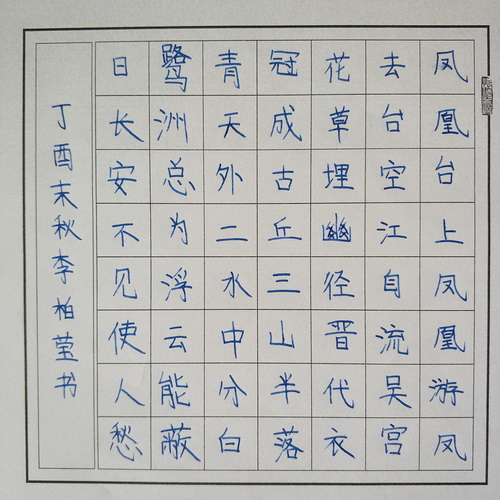 凤凰台上凤凰游凤
去台空江自流吴宫
花草埋幽径晋代衣
冠成古丘三山半落
青天外二水中分白
鹭洲总为浮云能蔽
日长安不见使人愁
丁酉末秋李柏莹书